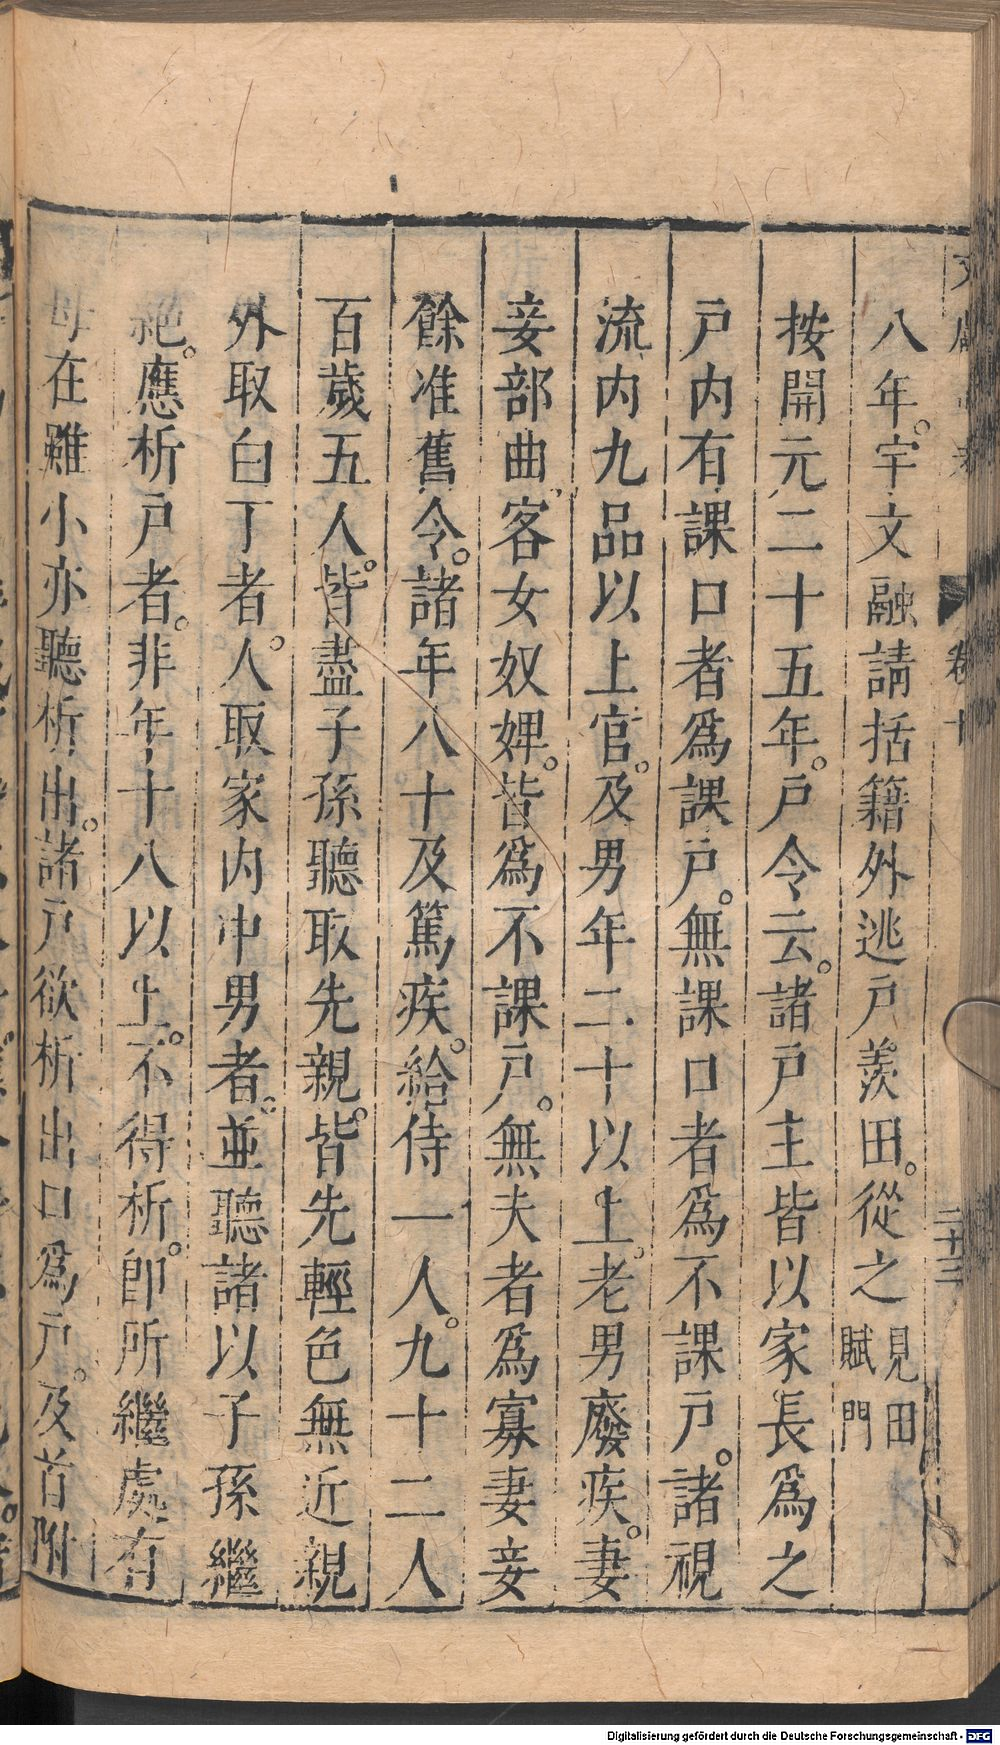 八年。宇文融請括籍外逃戸羨田。從之見田賦門
按開元二十五年。戸令云。諸戸主皆以家長爲之
戸内有課口者爲課戸。無課口者爲不課戸。諸視
流内九品以上官。及男年二十以上。老男廢疾。妻
妾部曲客女奴婢。皆爲不課戸。無夫者爲寡妻妾
餘准舊令。諸年八十及篤疾。給侍一人。九十二人
百歲五人。皆盡子孫聽取先親。皆先輕色無近親
外取白丁者。人取家内中男者。並聽諸以子孫繼
絕。應析戸者。非年十八以上。不得析。卽所繼處有
母在雖小亦聽析出。諸戸欲析出口爲戸。及首附
卷十
二十三
Digitalisierung gefördert durch die Deutsche Forschungsgemeinschaft - DFG